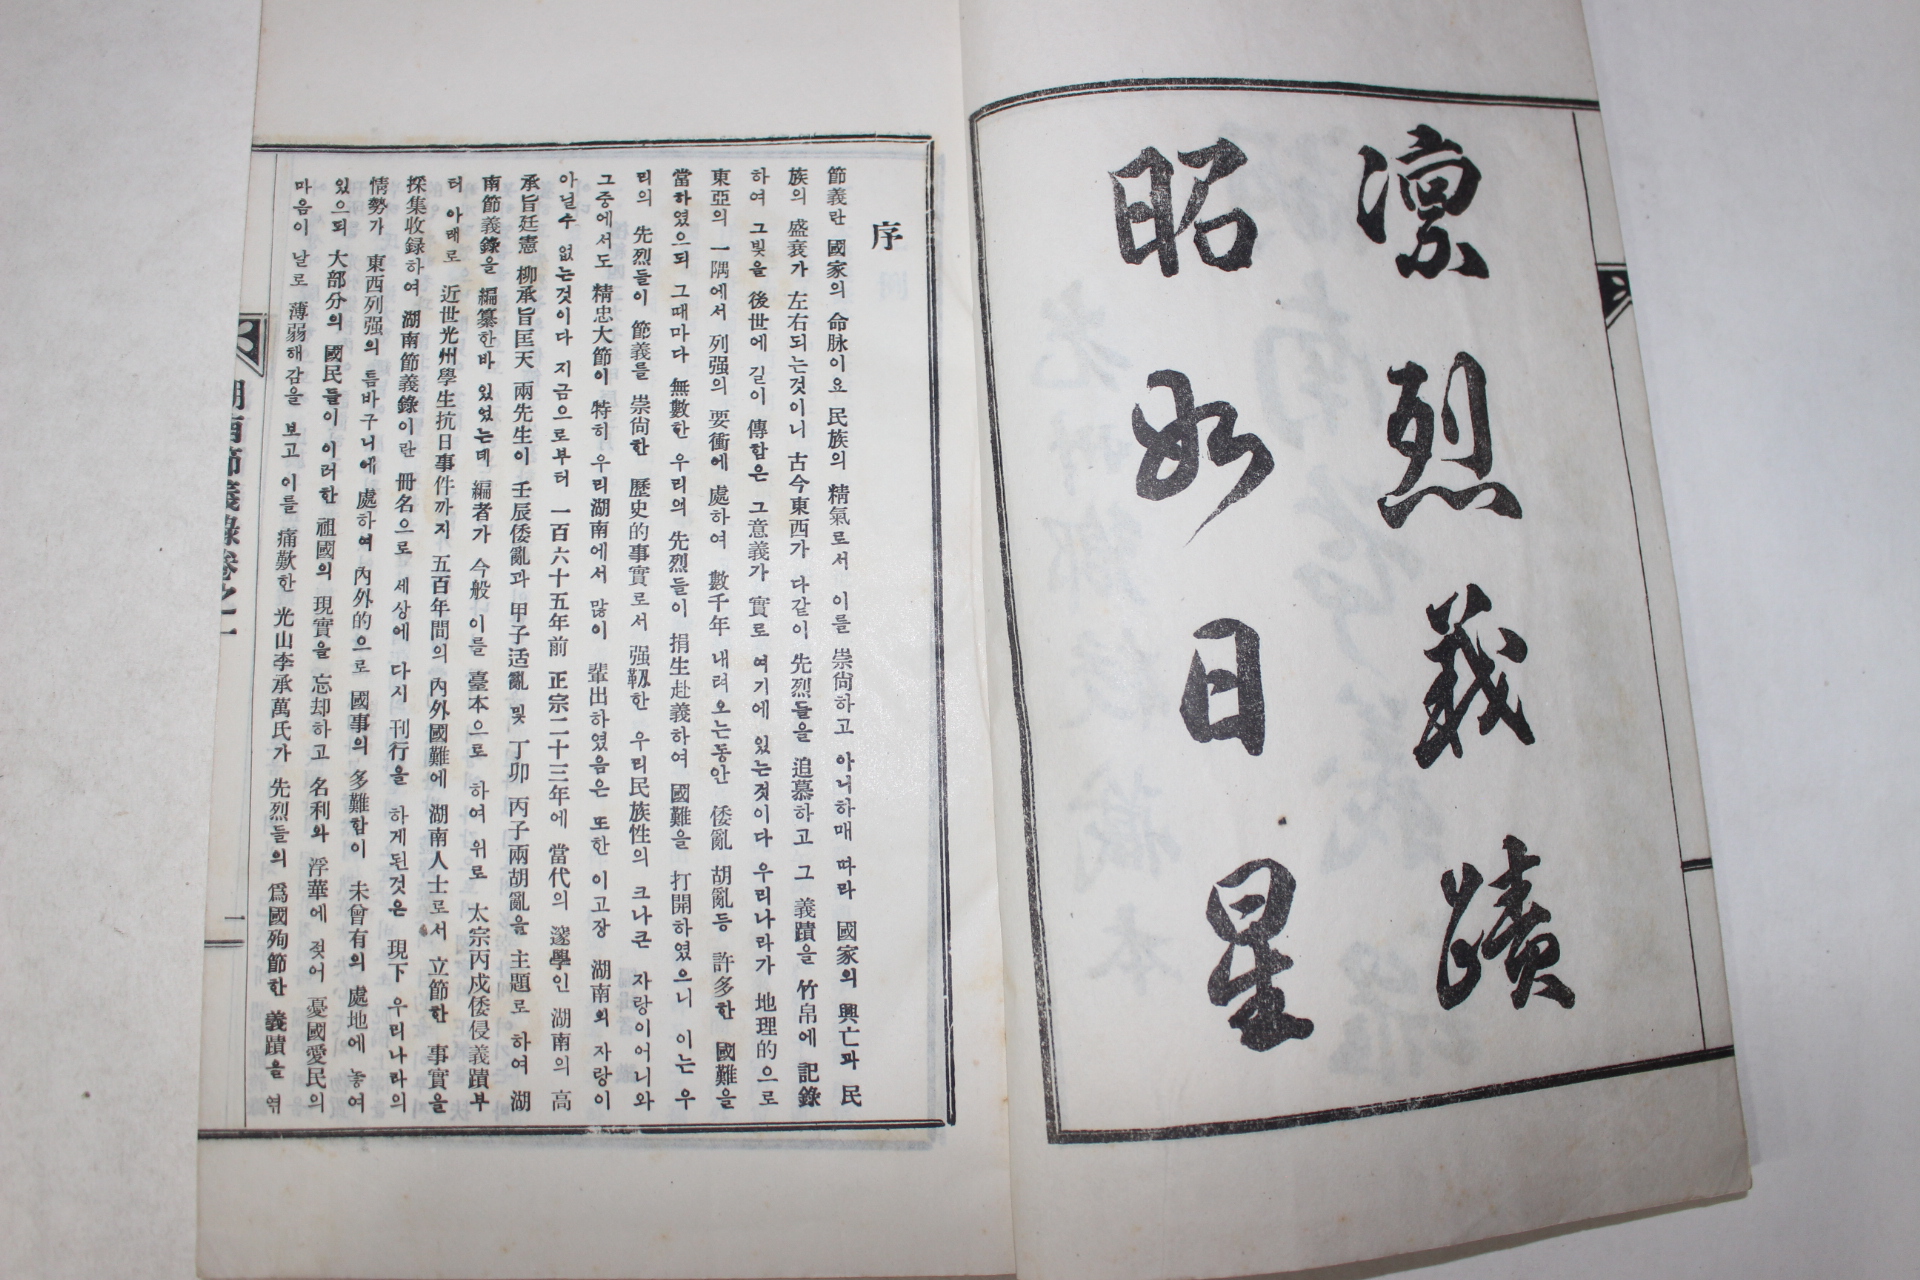 凛烈義蹟
昭如日星
序
節義란 國家의 命脉이요 民族의 精氣로서 이를 崇尙하고 아니하매 따라 國家의 興亡과 民
族의 盛衰가 左右되는것이니 古今東西가 다같이 先烈들을 追慕하고 그 義蹟을 竹帛에 記錄
하여 그빛을 後世에 길이 傳함은 그意義가 實로 여기에 있는것이다 우리나라가 地理的으로
東亞의 一隅에서 列强의 要衝에 處하여 數千年 내려오는동안 倭亂 胡亂等 許多한 國難을
當하였으되 그때마다 無數한 우리의 先烈들이 捐生赴義하여 國難을 打開하였으니 이는 우
리의 先烈들이 節義를 崇尙한 歷史的事實로서 强靱한 우리民族性의 크나큰 자랑이어니와
그중에서도 精忠大節이 特히 우리湖南에서 많이 輩出하였음은 또한 이고장 湖南의 자랑이
아닐수 없는것이다 지금으로부터 一百六十五年前 正宗二十三年에 當代의 邃學인 湖南의 高
承旨廷憲 柳承旨匡天 兩先生이 壬辰倭亂과 甲子适亂 및 丁卯 丙子兩胡亂을 主題로 하여 湖
南節義錄을 編纂한바 있었는데 編者가 今般 이를 臺本으로 하여 위로 太宗丙戍倭侵義蹟부
터 아래로 近世光州學生抗日事件까지 五百年間의 內外國難에 湖南人士로서 立節한 事實을
採集收録하여 湖南節義錄이란 冊名으로 세상에 다시 刊行을 하게된것은 現下 우리나라의
情勢가 東西列强의 틈바구니에 處하여 內外的으로 國事의 多難함이 未曾有의 處地에 놓여
있으되 大部分의 國民들이 이러한 祖國의 現實을 忘却하고 名利와 浮華에 젖어 憂國愛民의
마음이 날로 薄弱해감을 보고 이를 痛歎한 光山李承萬氏가 先烈들의 爲國殉節한 義蹟을 엮
湖南節義錄卷之一
一